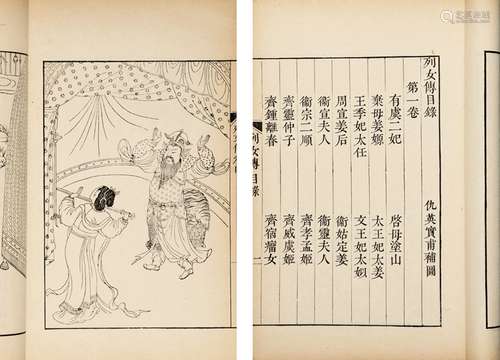 列女傳目錄 仇英實甫補圖
第一卷
有虞二妃 啓母塗山
棄母姜嫄 太王妃太姜
王季妃太任 文王妃太姒
周宣姜后 衞姑定姜
衞宣夫人 衞靈夫人
衞宗二順 齊孝孟姬
齊靈仲子 齊威虞姬
齊鍾離春 齊宿瘤女
列女傳目錄 一